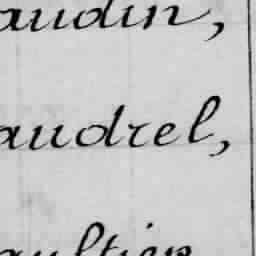 audin,
audrel,
aultier